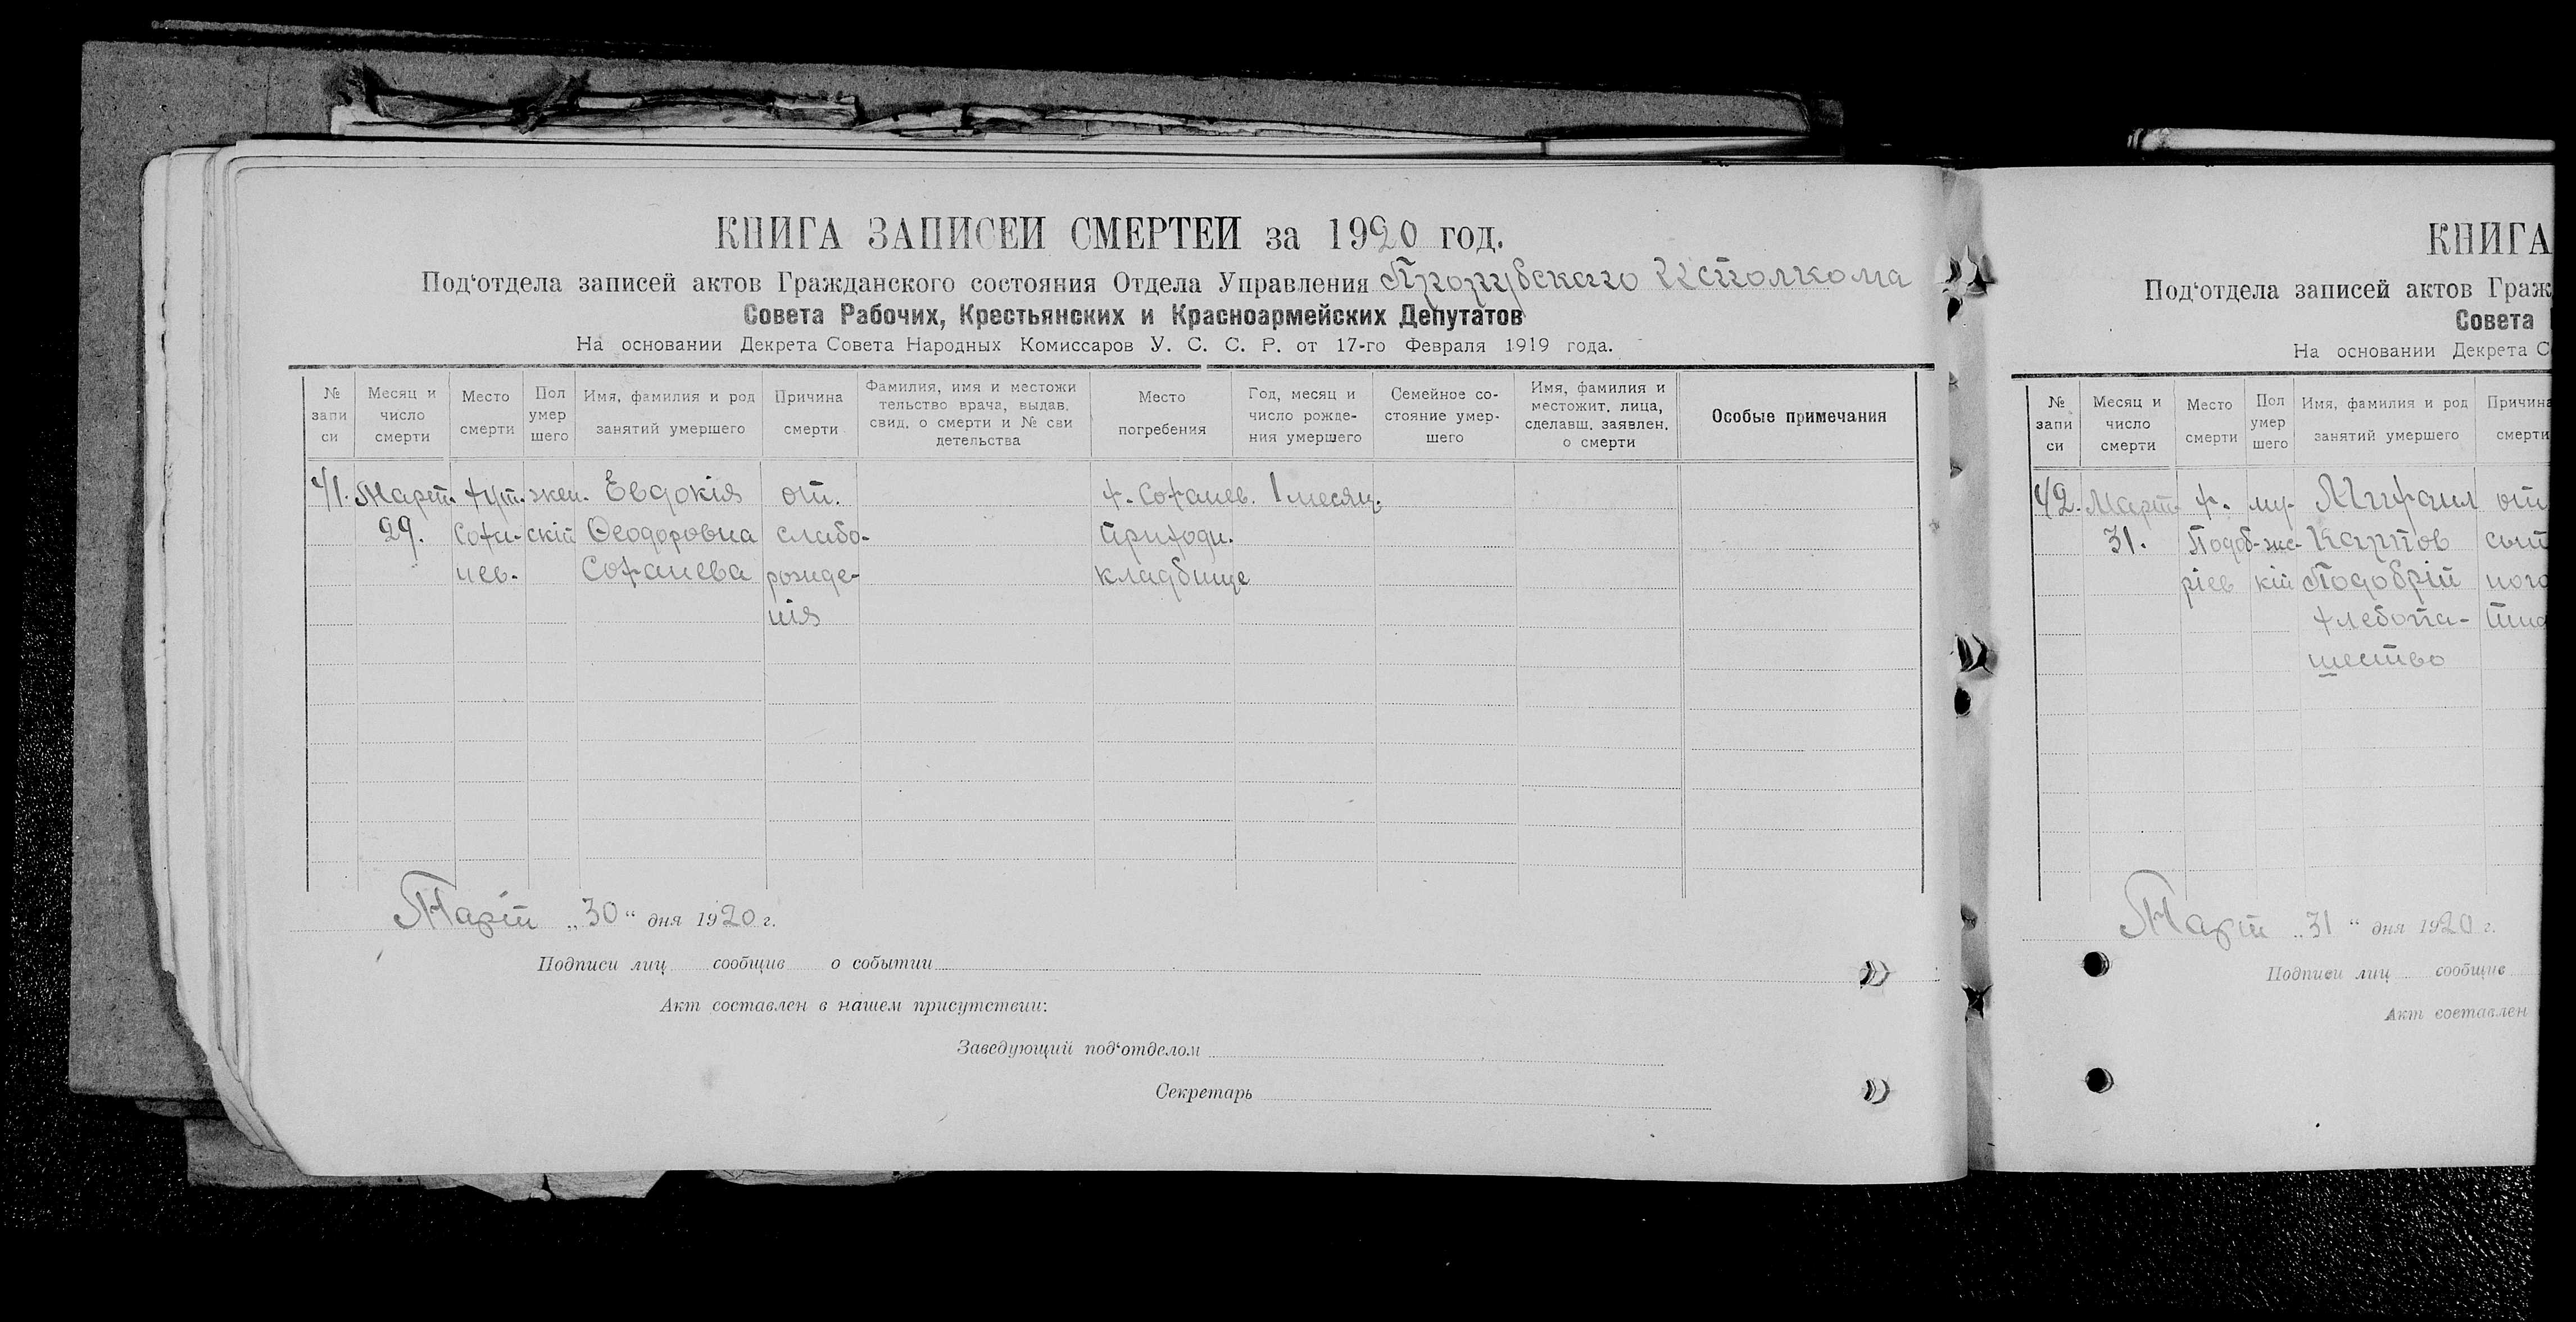 КНИГА ЗАПИСЕЙ СМЕРТЕЙ за 1920 год.
Под‘отдела записей актов Гражданского состояния Отдела Управления Исполкома
Совета Рабочих, Крестьянских и Красноармейских Депутатов
На основании Декрета Совета Народных Комиссаров У. С. С. Р. от 17-го Февраля 1919 года.
№ запи си
Месяц и число смерти
Место смерти
Пол умер шего
Имя, фамилия и род занятий умершего
Причина смерти
Фамилия, имя и местожи тельство врача, выдав. свид. о смерти и № сви детельства
Место погребения
Год, месяц и число рожде- ния умершего
Семейное со- стояние умер- шего
Имя, фамилия и местожит. лица, сделавш. заявлен. о смерти
Особые примечания
41. Март. хут. жен. Евдокія от. х. Соханев. 1 месяц.
29. Соха- скій Феодоровна слабо- приходи.
нев. Соханева рожде- кладбище
нія
Март „30“ дня 1920 г.
Подписи лиц сообщив о событии
Акт составлен в нашем присутствии:
Заведующий под‘отделом
Секретарь
КНИГА
Под‘отдела записей актов Граж
Совета
На основании Декрета С
№ запи си
Месяц и число смерти
Место смерти
Пол умер шего
Имя, фамилия и род занятий умершего
Причина смерти
42. Март. х. му- Михаил от
31. Подоб- жс- Карпов сып
ріев кій Подобрій ного
хлебопа- тиф
шество
Март „31“ дня 1920 г.
Подписи лиц сообщив
Акт составлен